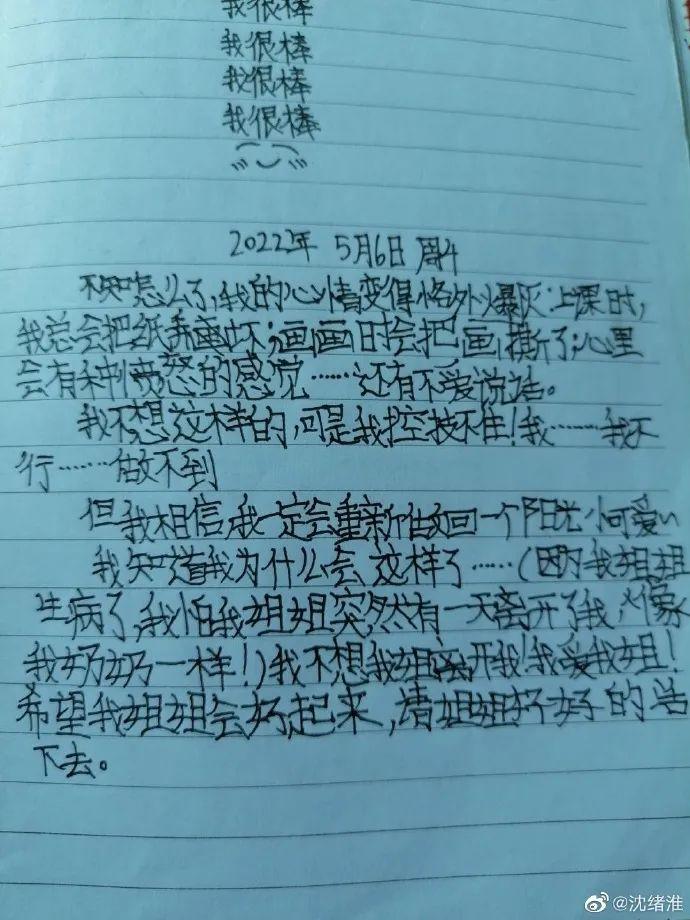 我很棒
我很棒
我很棒
我很棒
2022年 5月6日 周五
不知怎么了,我的心情变得格外爆灰:上课时,
我总会把纸弄坏;画画时会把画撕了;心里
会有种愤怒的感觉……还有不爱说话。
我不想这样的,可是我控技不住!我……我不
行……做不到
但我相信,我一定会重新做回一个阳光小可爱
我知道我为什么会这样了……(因为我姐姐
生病了,我怕我姐姐突然有一天离开了我,像
我奶奶一样!)我不想我姐离开我!我爱我姐!
希望我姐姐会好起来,请姐姐好好的活
下去。
@沈绪淮